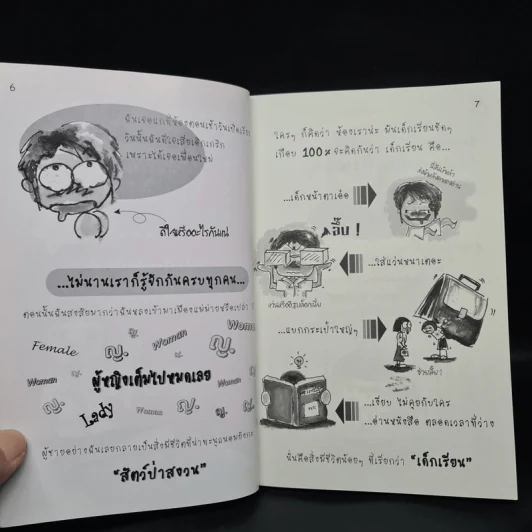 6
ฉันเจอแก๊ที่ห้องตอนเช้าวันเปิดเรียน
วันนั้นฉันดีใจเสียเด็กเกริก
เพราะได้เจอเพื่อนใหม่
ดีใจหรืออะไรกันแน่
...ไม่นานเราก็รู้จักกันครบทุกคน...
ตอนนั้นฉันสงสัยมากว่าฉันหลงเข้ามาเมืองแม่ม่ายหรือเปล่า
Female
ญ.
Woman
ญ.
Woman
Woman
ผู้หญิงเต็มไปหมดเลย
Woman
ญ.
Lady
Woman
ญ.
Woman
ญ.
ผู้ชายอย่างฉันเลยกลายเป็นสิ่งมีชีวิตที่น่าทะนุถนอมยิ่งกว่า
"สัตว์ป่าสงวน"
7
ใครๆ ก็คิดว่า ห้องเราน่ะ มันเด็กเรียนชัดๆ
เกือบ 100% จะคิดกันว่า เด็กเรียน คือ...
...เด็กหน้าตาเอ๋อ
อึ๊บ !
...ใส่แว่นหนาเตอะ
...แบกกระเป๋าใหญ่ๆ
...เงียบ ไม่คุยกับใคร
...อ่านหนังสือ ตลอดเวลาที่ว่าง
นั่นคือสิ่งมีชีวิตน้อยๆ ที่เรียกว่า "เด็กเรียน"